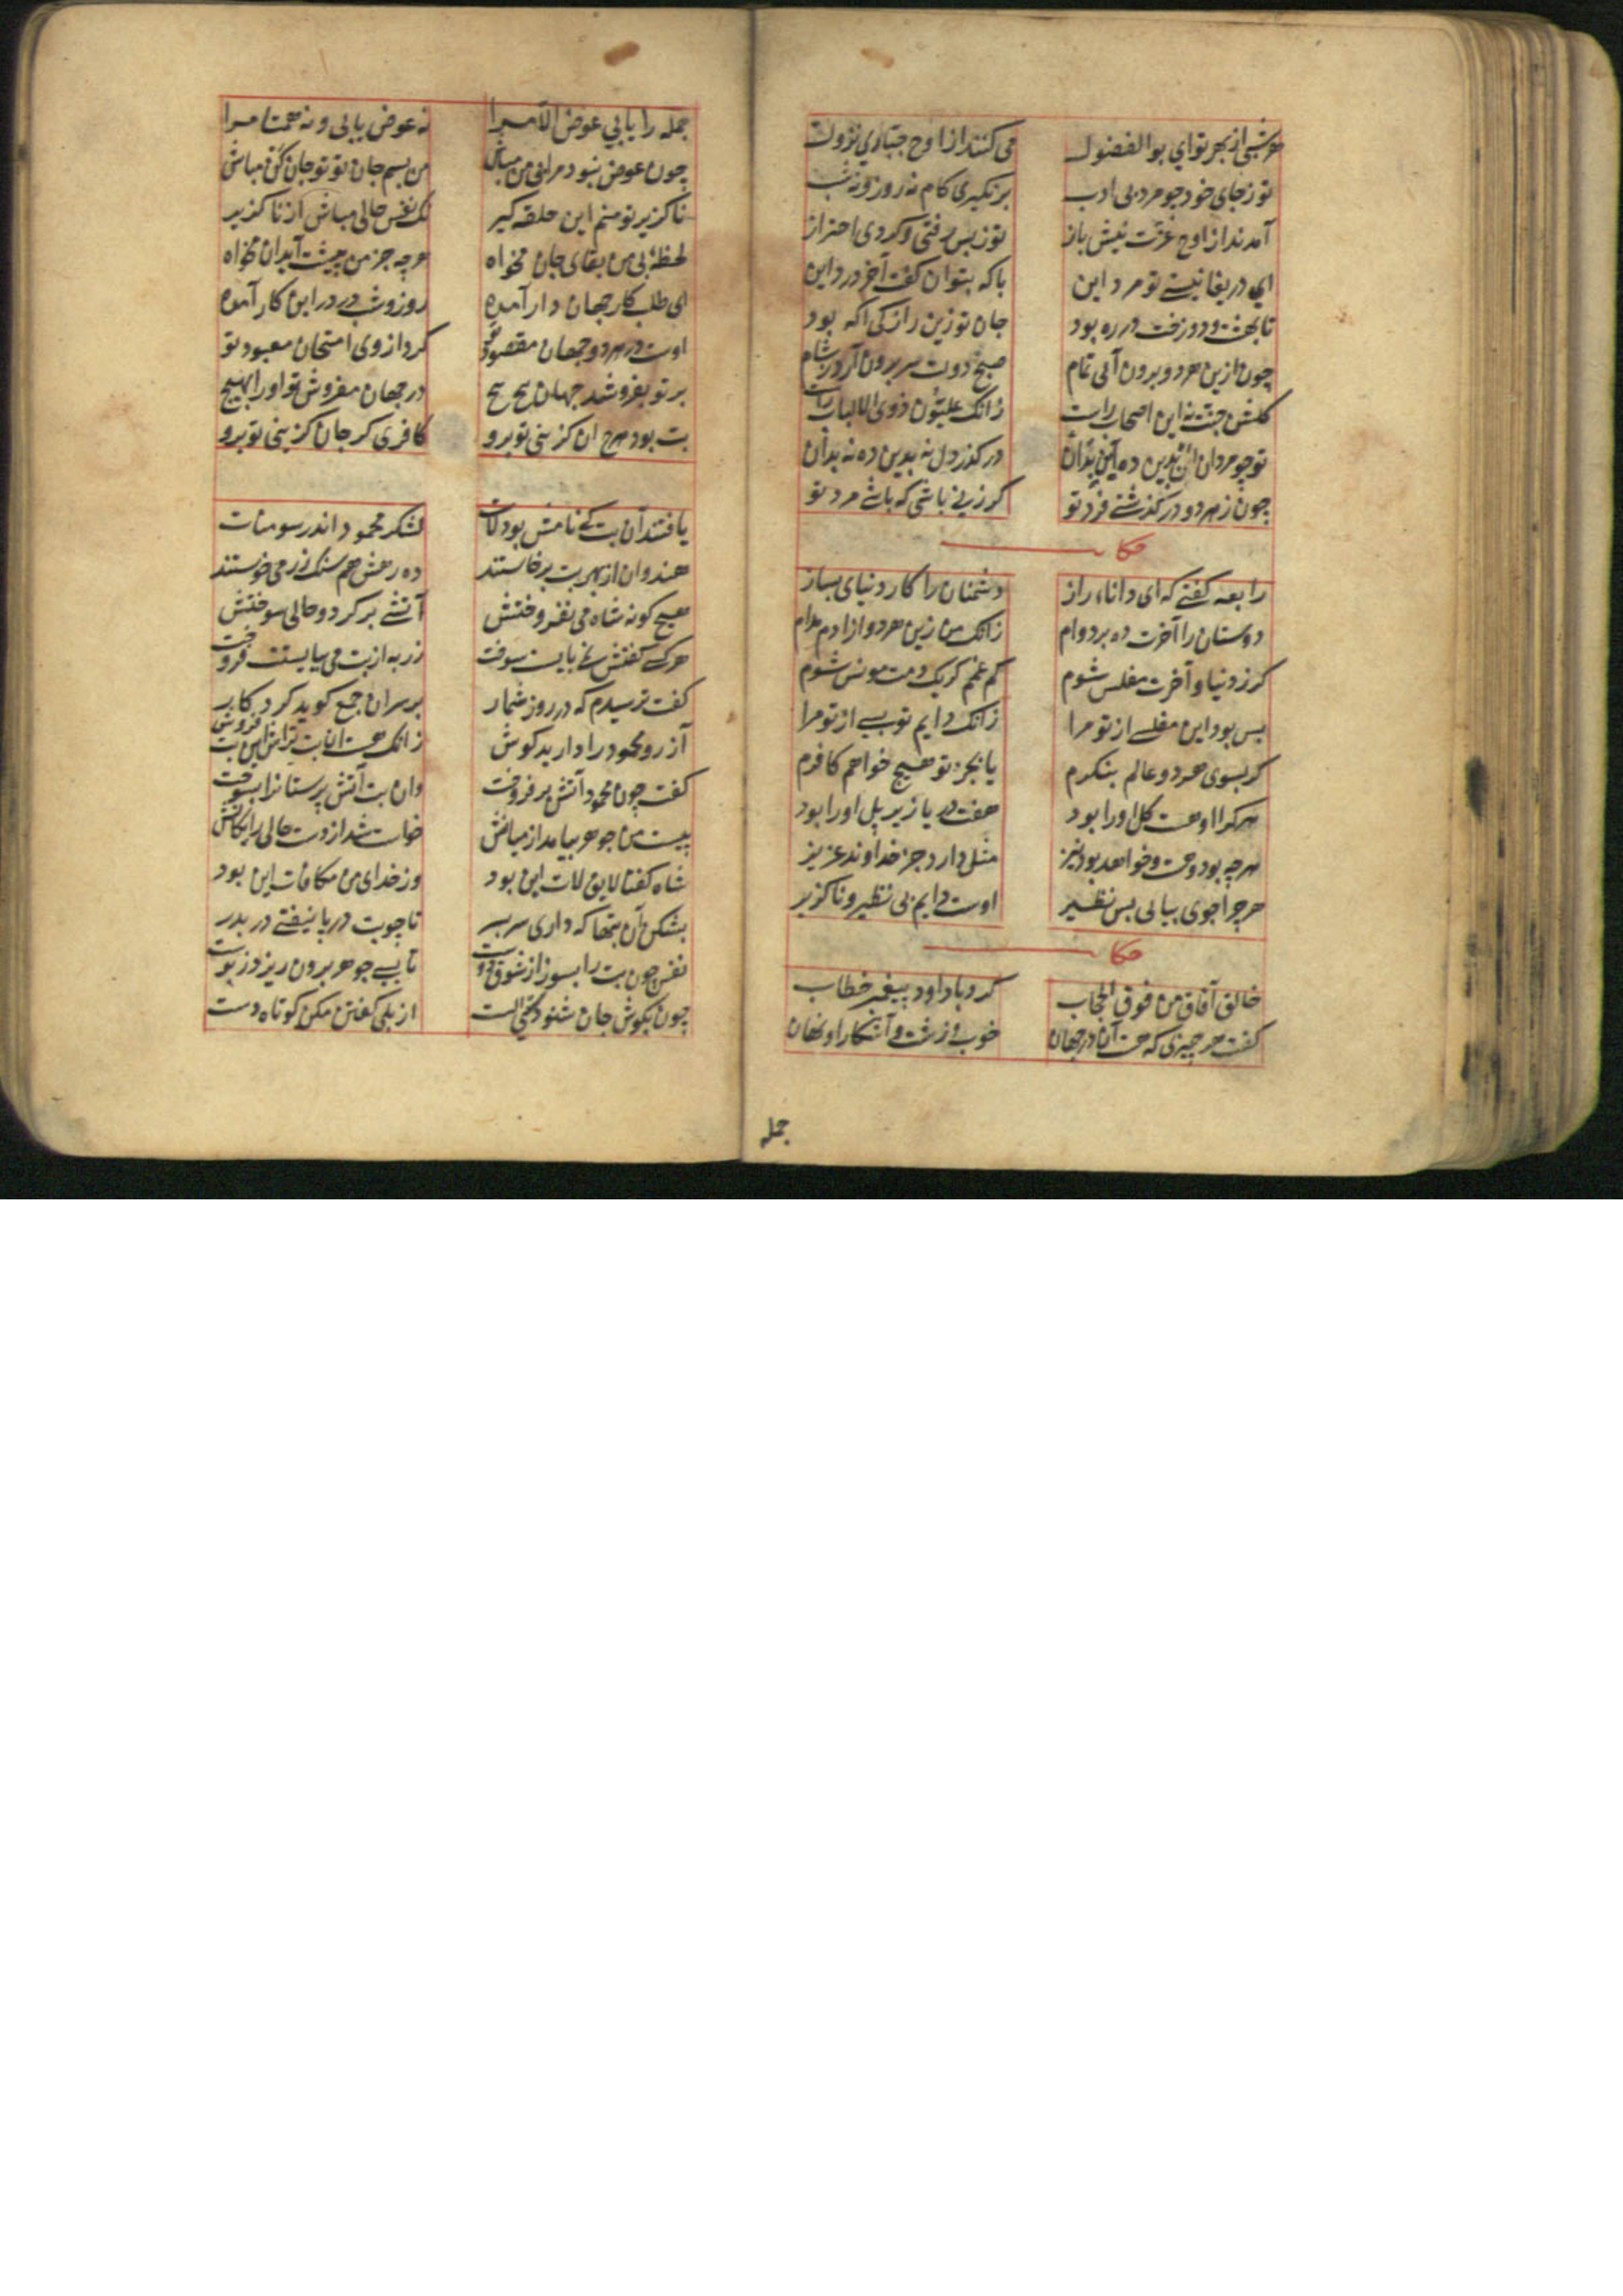 هر شبی از بهر تو ای بوالفضول می‌کنند از اوج جباری نزول
تو ز جای خود چو مرد بی ادب برنگیری گام نه روز و نه شب
آمدند از اوج عزت پیش باز تو ز پس رفتی و کردی احتراز
ای دریغا نیستی تو مرد این با که بتوان گفت آخر درد این
تا بهشت و دوزخت در ره بود جان تو زین راز کی آگه بود
چون ازین هر دو برون آیی تمام صبح دولت سر برون آرد ز شام
گلشن جنت نه این اصحاب راست زانک علیون ذوی الالباب راست
تو چو مردان این بدین ده آن بدان درگذر دل نه بدین ده نه بدان
چون ز هر دو درگذشتی فرد تو گر زنی باشی که باشی مرد تو
حکا
رابعه گفتی که ای دانای راز دشمنان را کار دنیای بساز
دوستان را آخرت ده بر دوام زانک من زین هر دو آزادم مدام
گر ز دنیا و آخرت مفلس شوم کم غمم گر یک دمت مونس شوم
بس بود این مفلسی از تو مرا زانک دایم تو بسی از تو مرا
گر بسوی هر دو عالم بنگرم یا بجز تو هیچ خواهم کافرم
هرکرا او هست کل او را بود هفت دریا زیر پل او را بود
هرچه بود و هست و خواهد بود نیز مثل دارد جز خداوند عزیز
هرچرا جوی بیابی بس نظیر اوست دایم بی نظیر و ناگزیر
حکا
خالق آفاق من فوق الحجاب کرد با داود پیغمبر خطاب
گفت هر چیزی که هست آن در جهان خوب و زشت و آشکار او نهان
جمله
جمله را یابی عوض الا مرا نه عوض یابی و نه همتا مرا
چون عوض نبود مرا بی من مباش من بسم جان تو تو جان کن مباش
ناگزیر تو منم این حلقه گیر یک نفس خالی مباش از ناگزیر
لحظهٔ بی من بقای جان مخواه هرچه جز من پیشت آید آن مخواه
ای طلب کار جهان دار آمده روز و شب در درد این کار آمده
اوست در هر دو جهان مقصود تو گر دازوی امتحان معبود تو
بر تو بفروشد جهان هیچ هیچ در جهان مفروش تو او را بهیچ
بت بود هرچ آن گزینی تو برو کافری گر جان گزینی تو برو
لشکر محمود اندر سومنات یافتند آن بت که نامش بود لات
هندوان از بهر بت برخاستند ده رهش هم سنگ زر می‌خواستند
هیچ گونه شاه می نفروختش آتشی برکرد و حالی سوختش
هرکسی گفتش نمی بایست سوخت زر به از بت می ببایستت فروخت
گفت ترسیدم که در روز شمار بر سر آن جمع گوید کردگار
آزر و محمود را دارید گوش زانک هست آن بت تراش این بت فروش
گفت چون محمود آتش برفروخت وان بت آتش پرستانرا بسوخت
بیست من جوهر بیامد از میانش خواست شد از دست حالی رایگانش
شاه گفتا لایق لات این بود وز خدای من مکافات این بود
بشکن آن بتها که داری سر بسر تا چو بت در پا نیفتی در بدر
نفس چون بت را بسوز از شوق دوست تا بسی جوهر برون ریزد ز پوست
چون بگوش جان شنودی الست از بلی گفتن مکن کوتاه دست